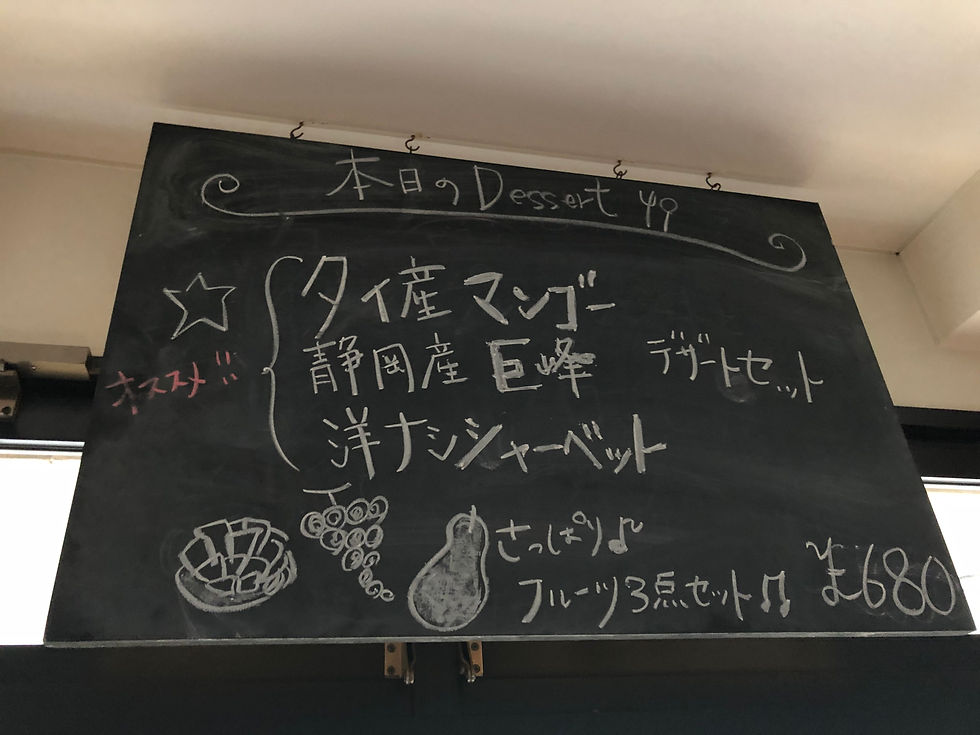 本日の Dessert
☆ タイ産マンゴー
オススメ!! 静岡産 巨峰 デザートセット
洋ナシシャーベット
さっぱり♪
フルーツ3点セット♫ ¥680